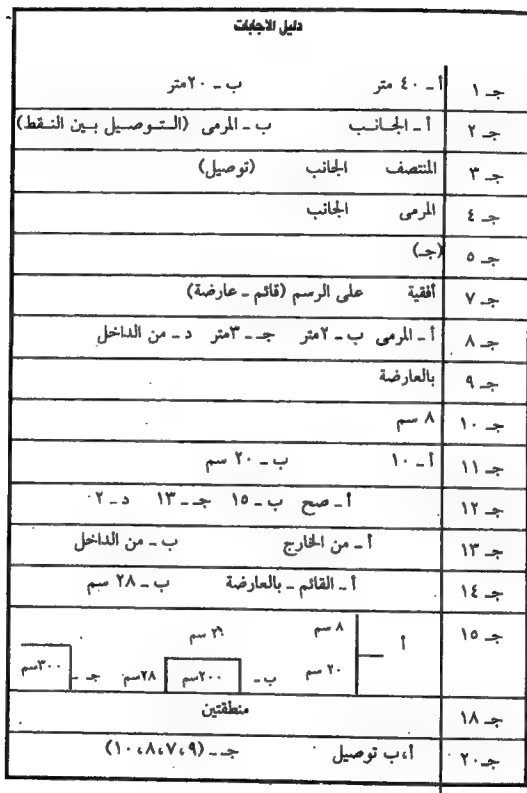 دليل الاجابات
جـ ١ أ ـ ٤٠ متر ب ـ ٢٠متر
جـ ٢ أ ـ الجانب ب ـ المرمى (التوصيل بين النقط)
جـ ٣ المنتصف الجانب (توصيل)
جـ ٤ المرمى الجانب
جـ ٥ (جـ)
جـ ٧ أفقية على الرسم (قائم ـ عارضة)
جـ ٨ أ ـ المرمى ب ـ ٢متر جـ ـ ٣متر د ـ من الداخل
جـ ٩ بالعارضة
جـ ١٠ ٨ سم
جـ ١١ أ ـ ١٠ ب ـ ٢٠ سم
جـ ١٢ أ ـ صح ب ـ ١٥ جـ ـ ١٣ د ـ ٢
جـ ١٣ أ ـ من الخارج ب ـ من الداخل
جـ ١٤ أ ـ القائم ـ بالعارضة ب ـ ٢٨ سم
جـ ١٥ أ ٨ سم ٢٠ سم ب ـ ٢٠٠سم ٢٨سم جـ ـ ٣٠٠سم
جـ ١٨ منطقتين
جـ ٢٠ أ،ب توصيل جـ ـ (٩،٧،٨،١٠)